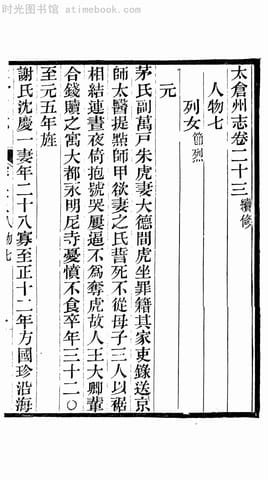 时光图书馆 · atimebook.com
太倉州志卷二十三 續修
人物七
列女 節烈
元
茅氏副萬戸朱虎妻大德間虎坐罪籍其家吏錄送京
師太醫提㸃師甲欲妻之氏誓死不從母子三人以裾
相結連晝夜倚抱號哭屢逼不爲奪虎故人王大卿輦
合錢贖之寓大都永明尼寺憂憤不食卒年三十二〇
至元五年旌
謝氏沈慶一妻年二十八寡至正十二年方國珍沿海
人物七